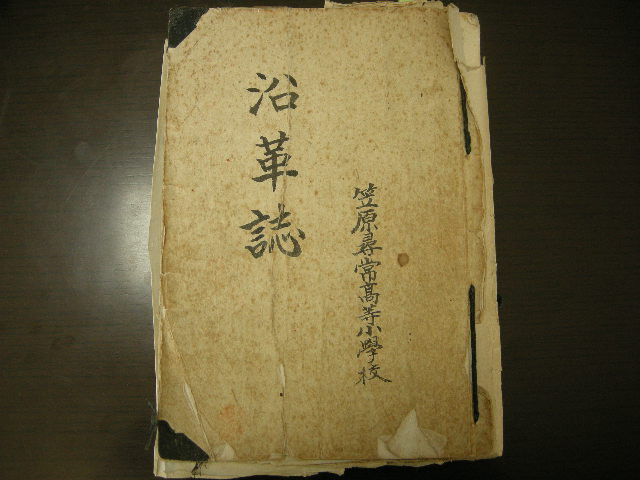 笠原尋常高等小學校
沿革誌